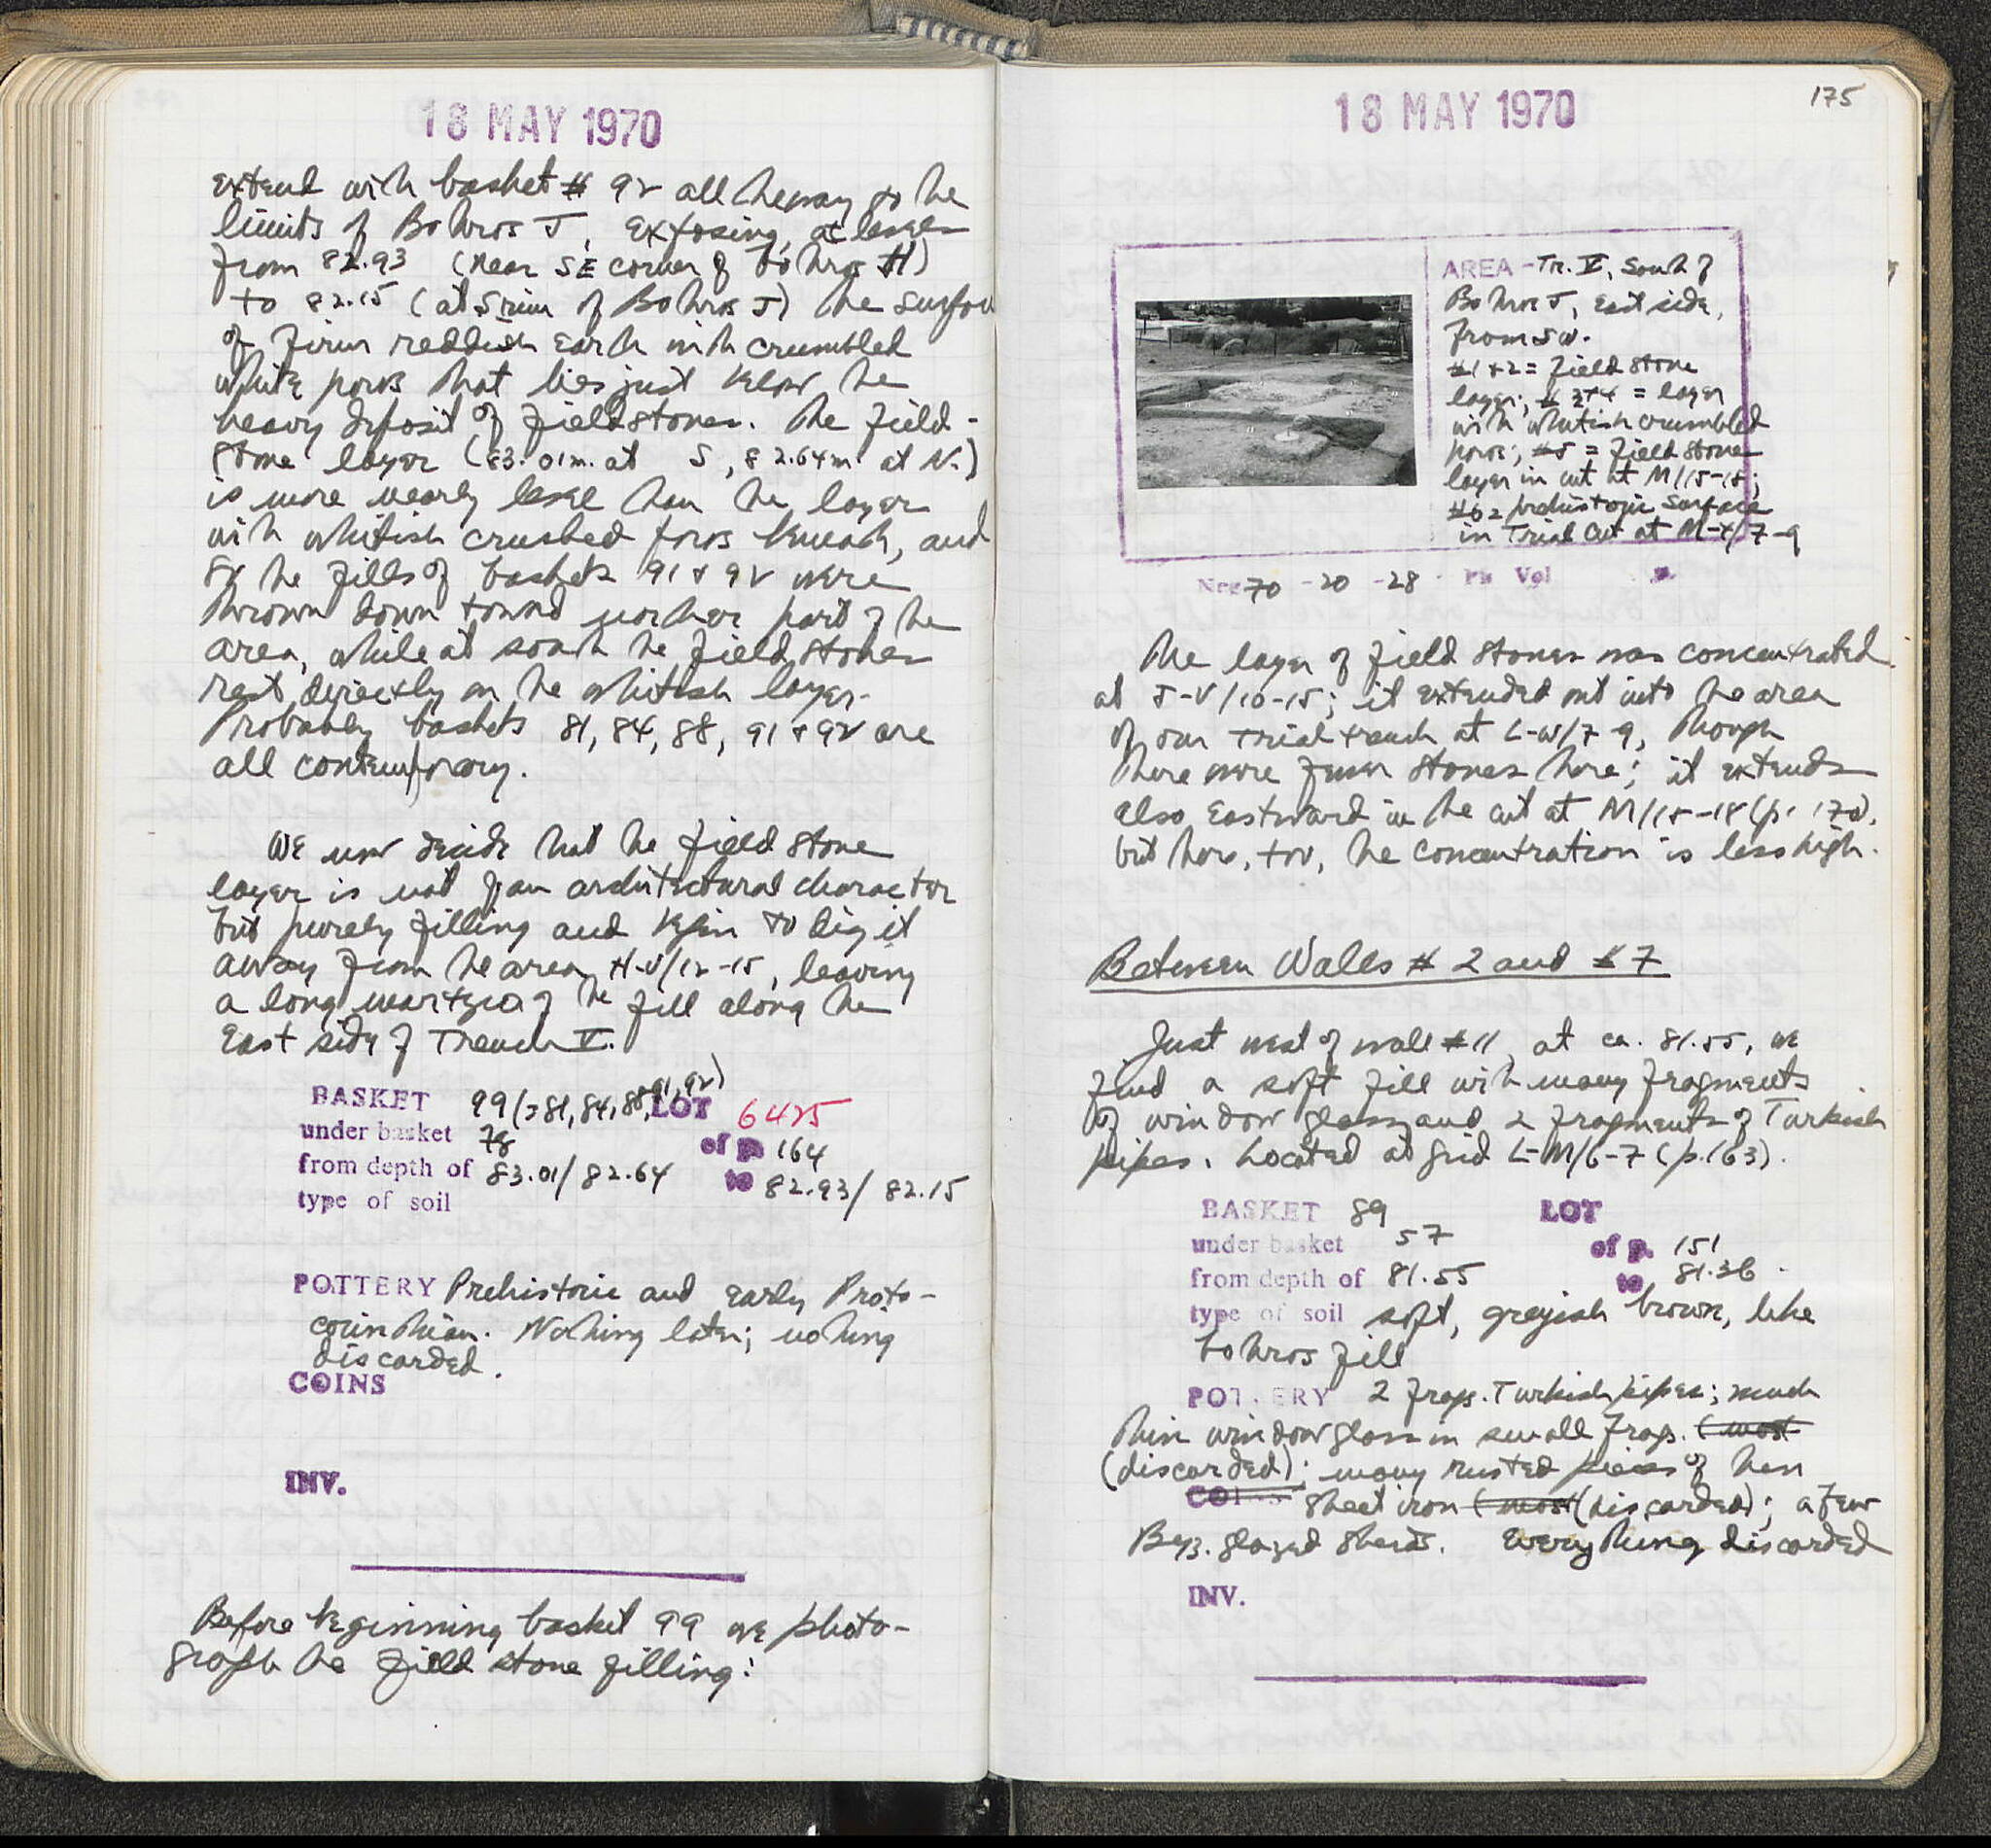 18 MAY 1970
extend with basket # 92 all the way to the
limits of Bothros J, exposing, at levels
from 82.93 (near SE corner of bothros H)
to 82.15 (at S rim of Bothros J) the surface
of firm reddish earth with crumbled
white poros that lies just below the
heavy deposit of fieldstones. The field-
stone layer (83.01m. at S, 82.64m. at N.)
is more nearly level than the layer
with whitish crushed poros beneath, and
so the fills of baskets 91 & 92 were
thrown down toward norther part of the
area, while at south the field stones
rest directly on the whitish layer.
Probably baskets 81, 84, 88, 91 & 92 are
all contemporary.
We now decide that the field stone
layer is not of an architectural character
but purely filling and begin to dig it
away from the area H-V/12-15, leaving
a long martyra of the fill along the
East side of Trench V.
BASKET 99 (=81, 84, 88, 91, 92) LOT 6425
under basket 78 of p. 164
from depth of 83.01/82.64 to 82.93/82.15
type of soil
POTTERY Prehistoric and early Proto-
corinthian. Nothing later; nothing
discarded.
COINS
INV.
Before beginning basket 99 we photo-
graph the field stone filling:
175
18 MAY 1970
AREA - Tr. V, South of
Bothros J, East side,
from SW.
#1+2 = field stone
layer; # 3+4 = layer
with whitish crumbled
poros; #5 = field stone
layer in cut at M/15-18;
#6 = prehistoric surface
in Trial Cut at M-X/7-9
Neg 70 - 20 - 28 Ph Vol p.
The layer of field stones was concentrated
at J-V/10-15; it extended out into the area
of our trial trench at L-W/7-9, though
there were fewer stones there; it extends
also Eastward in the cut at M/15-18 (p. 170),
but here, too, the concentration is less high.
Between Walls # 2 and # 7
Just west of wall # 11, at ca. 81.55, we
find a soft fill with many fragments
of window glass and 2 fragments of Turkish
pipes. Located at grid L-M/6-7 (p. 163).
BASKET 89 LOT
under basket 57 of p. 151
from depth of 81.55 to 81.36
type of soil soft, greyish brown, like
bothros fill
POTTERY 2 frags. Turkish pipes; much
thin window glass in small frags. (most
(discarded); many rusted pieces of thin
COINS sheet iron (most (discarded); a few
Byz. glazed sherds. Everything discarded
INV.